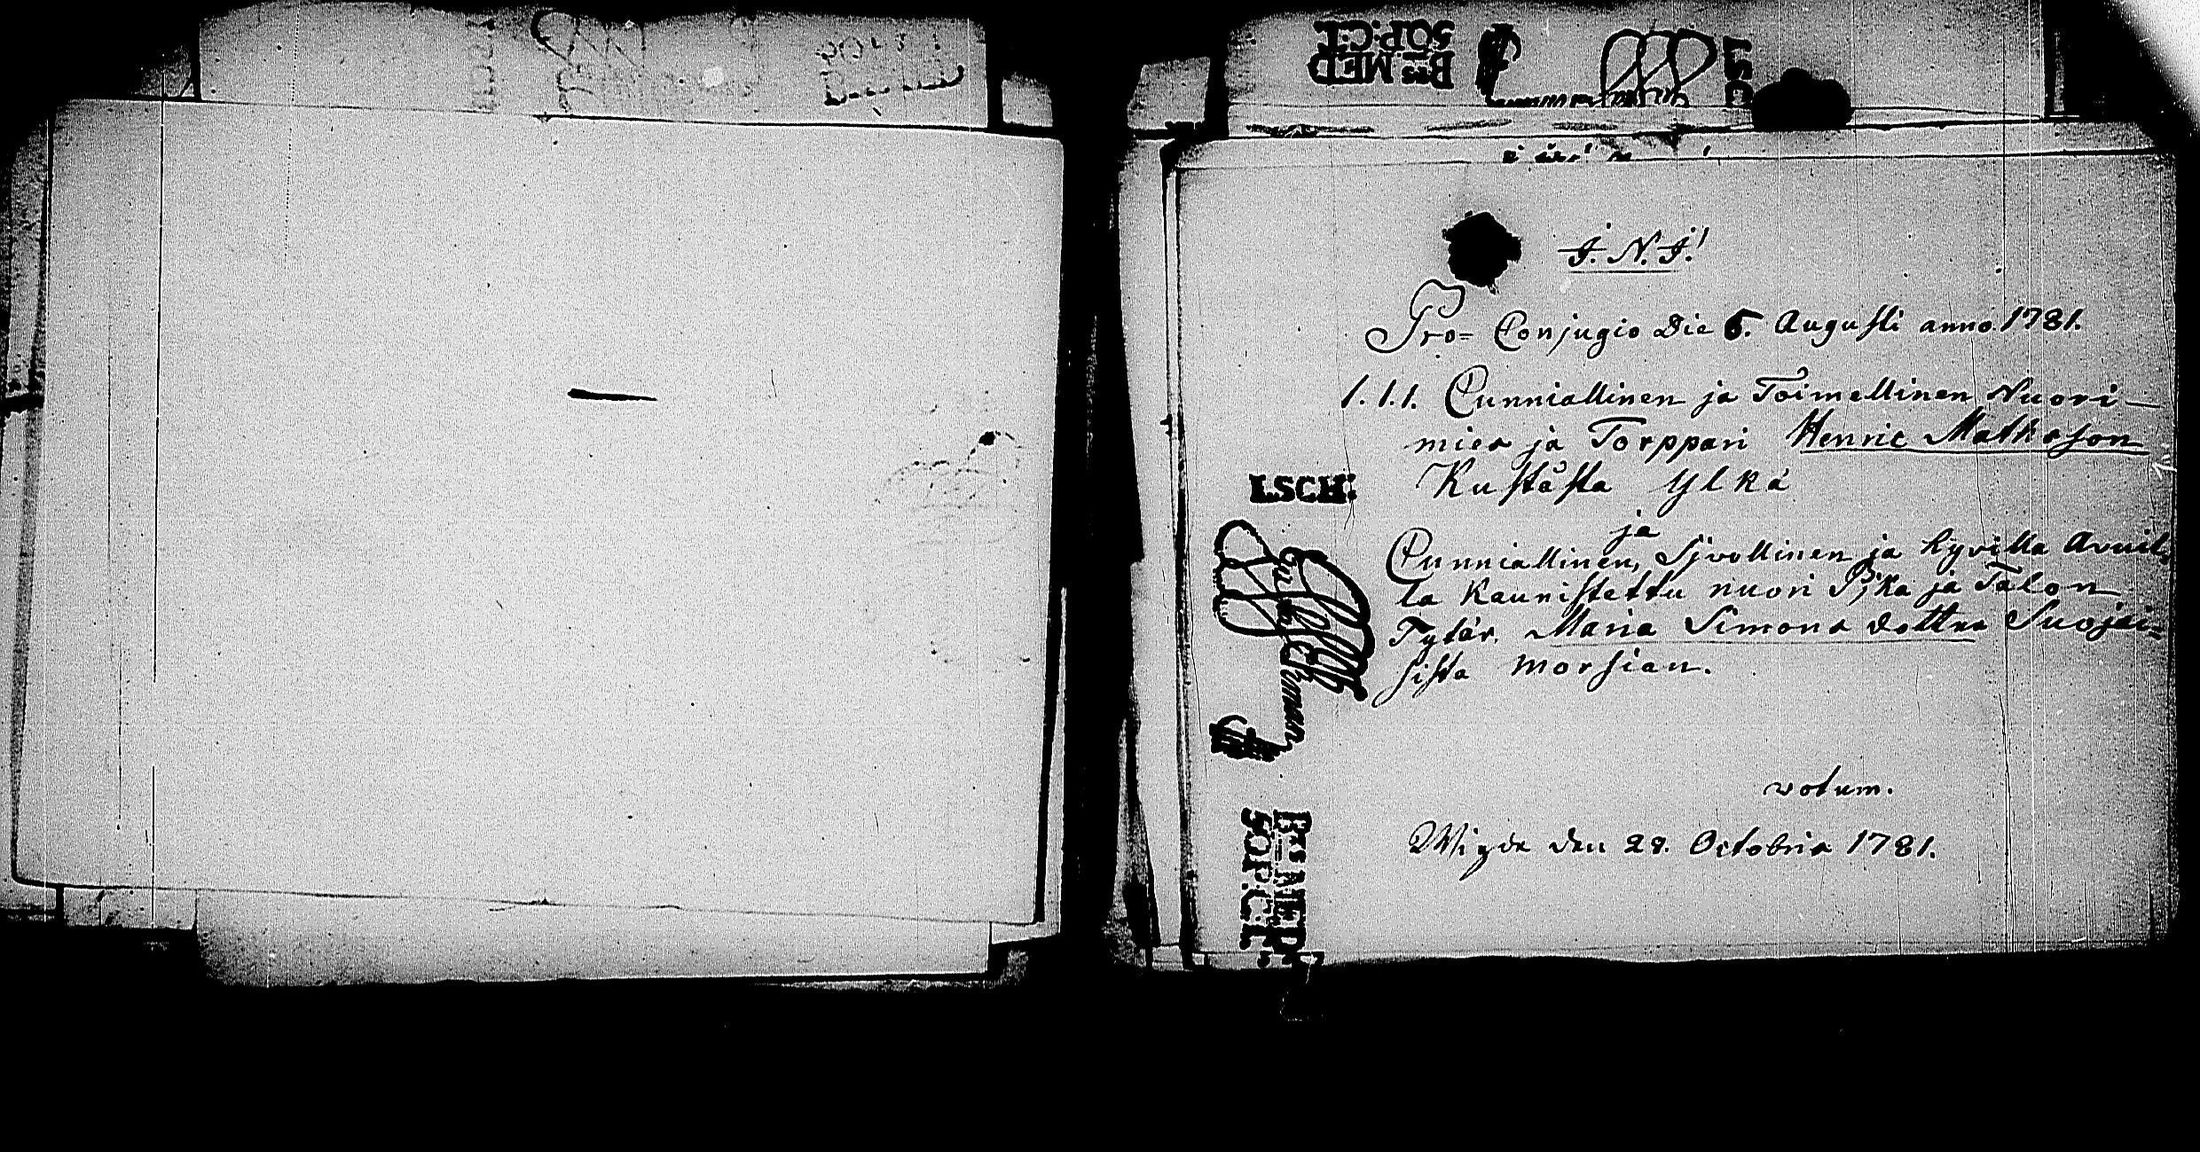 J. N. J!
Pro= Conjugio Die 5. Augusti anno 1781.
1. 1. 1. Cunniallinen ja Toimellinen Nuori-
mies ja Torppari Henric Mathsson
Kustästa Ylkä
ja
Cunniallinen, Sivollinen ja hyvillä Avuil
la Kaunistettu nuori Pika ja Talon
Tytär. Maria Simons dotter Suojai=
sista Morsian.
votum.
Wigde den 28. Octobris 1781.
LSCH:
BTS MEP
SOP:C:L: